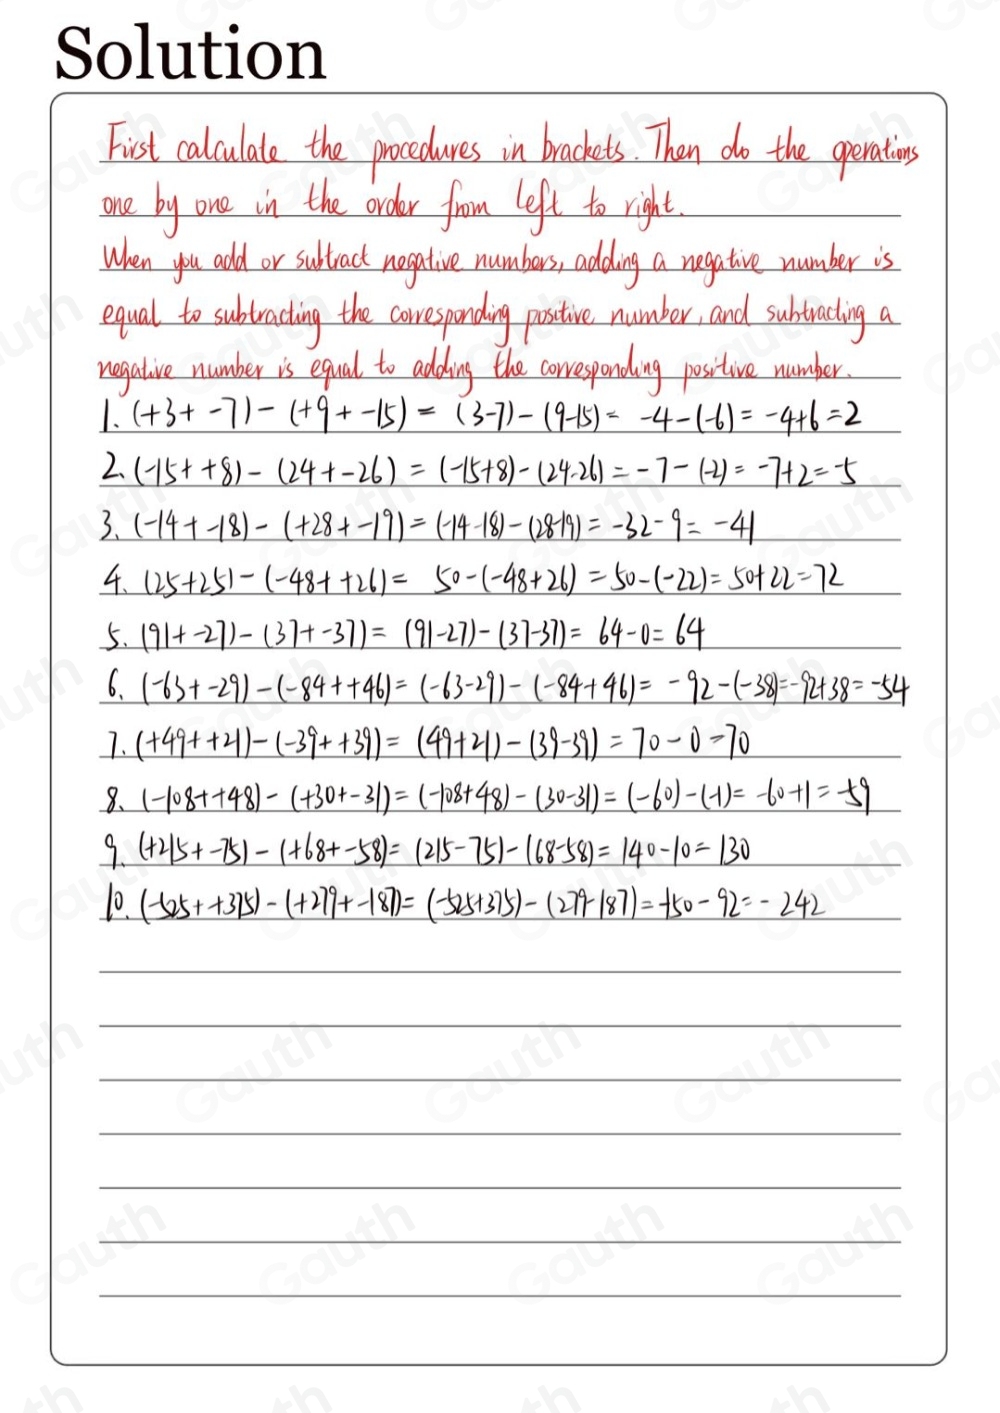 Solution
First calculate the procedures in brackets. Then do the operations
one by one in the order from left to right.
When you add or subtract negative numbers, adding a negative number is
equal to subtracting the corresponding positive number, and subtracting a
negative number is equal to adding the corresponding positive number.
1. (+3+-7)-(+9+-15)= (3-7)-(9-15)= -4-(-6)= -4+6=2
2. (-15++8)-(24+-26)= (-15+8)-(24-26)=-7-(-2)= -7+2=-5
3. (-14+-18)-(+28+-19)=(-14-18)-(28-19)= -32-9= -41
4. (25+25)-(-48++26)= 50-(-48+26)=50-(-22)=50+22=72
5. (91+-27)-(37+-37)= (91-27)-(37-37)= 64-0=64
6. (-63+-29)-(-84++46)= (-63-29)-(-84+46)= -92-(-38)=-92+38=-54
7. (+49++21)-(-39++39)= (49+21)-(39-39)=70-0=70
8. (-108++48)-(+30+-31)=(-108+48)-(30-31)=(-60)-(-1)= -60+1=-59
9. (+215+-75)-(+68+-58)= (215-75)-(68-58)= 140-10=130
10. (-525++375)-(+279+-187)= (-525+375)-(279-187)=-150-92=-242
Gauth